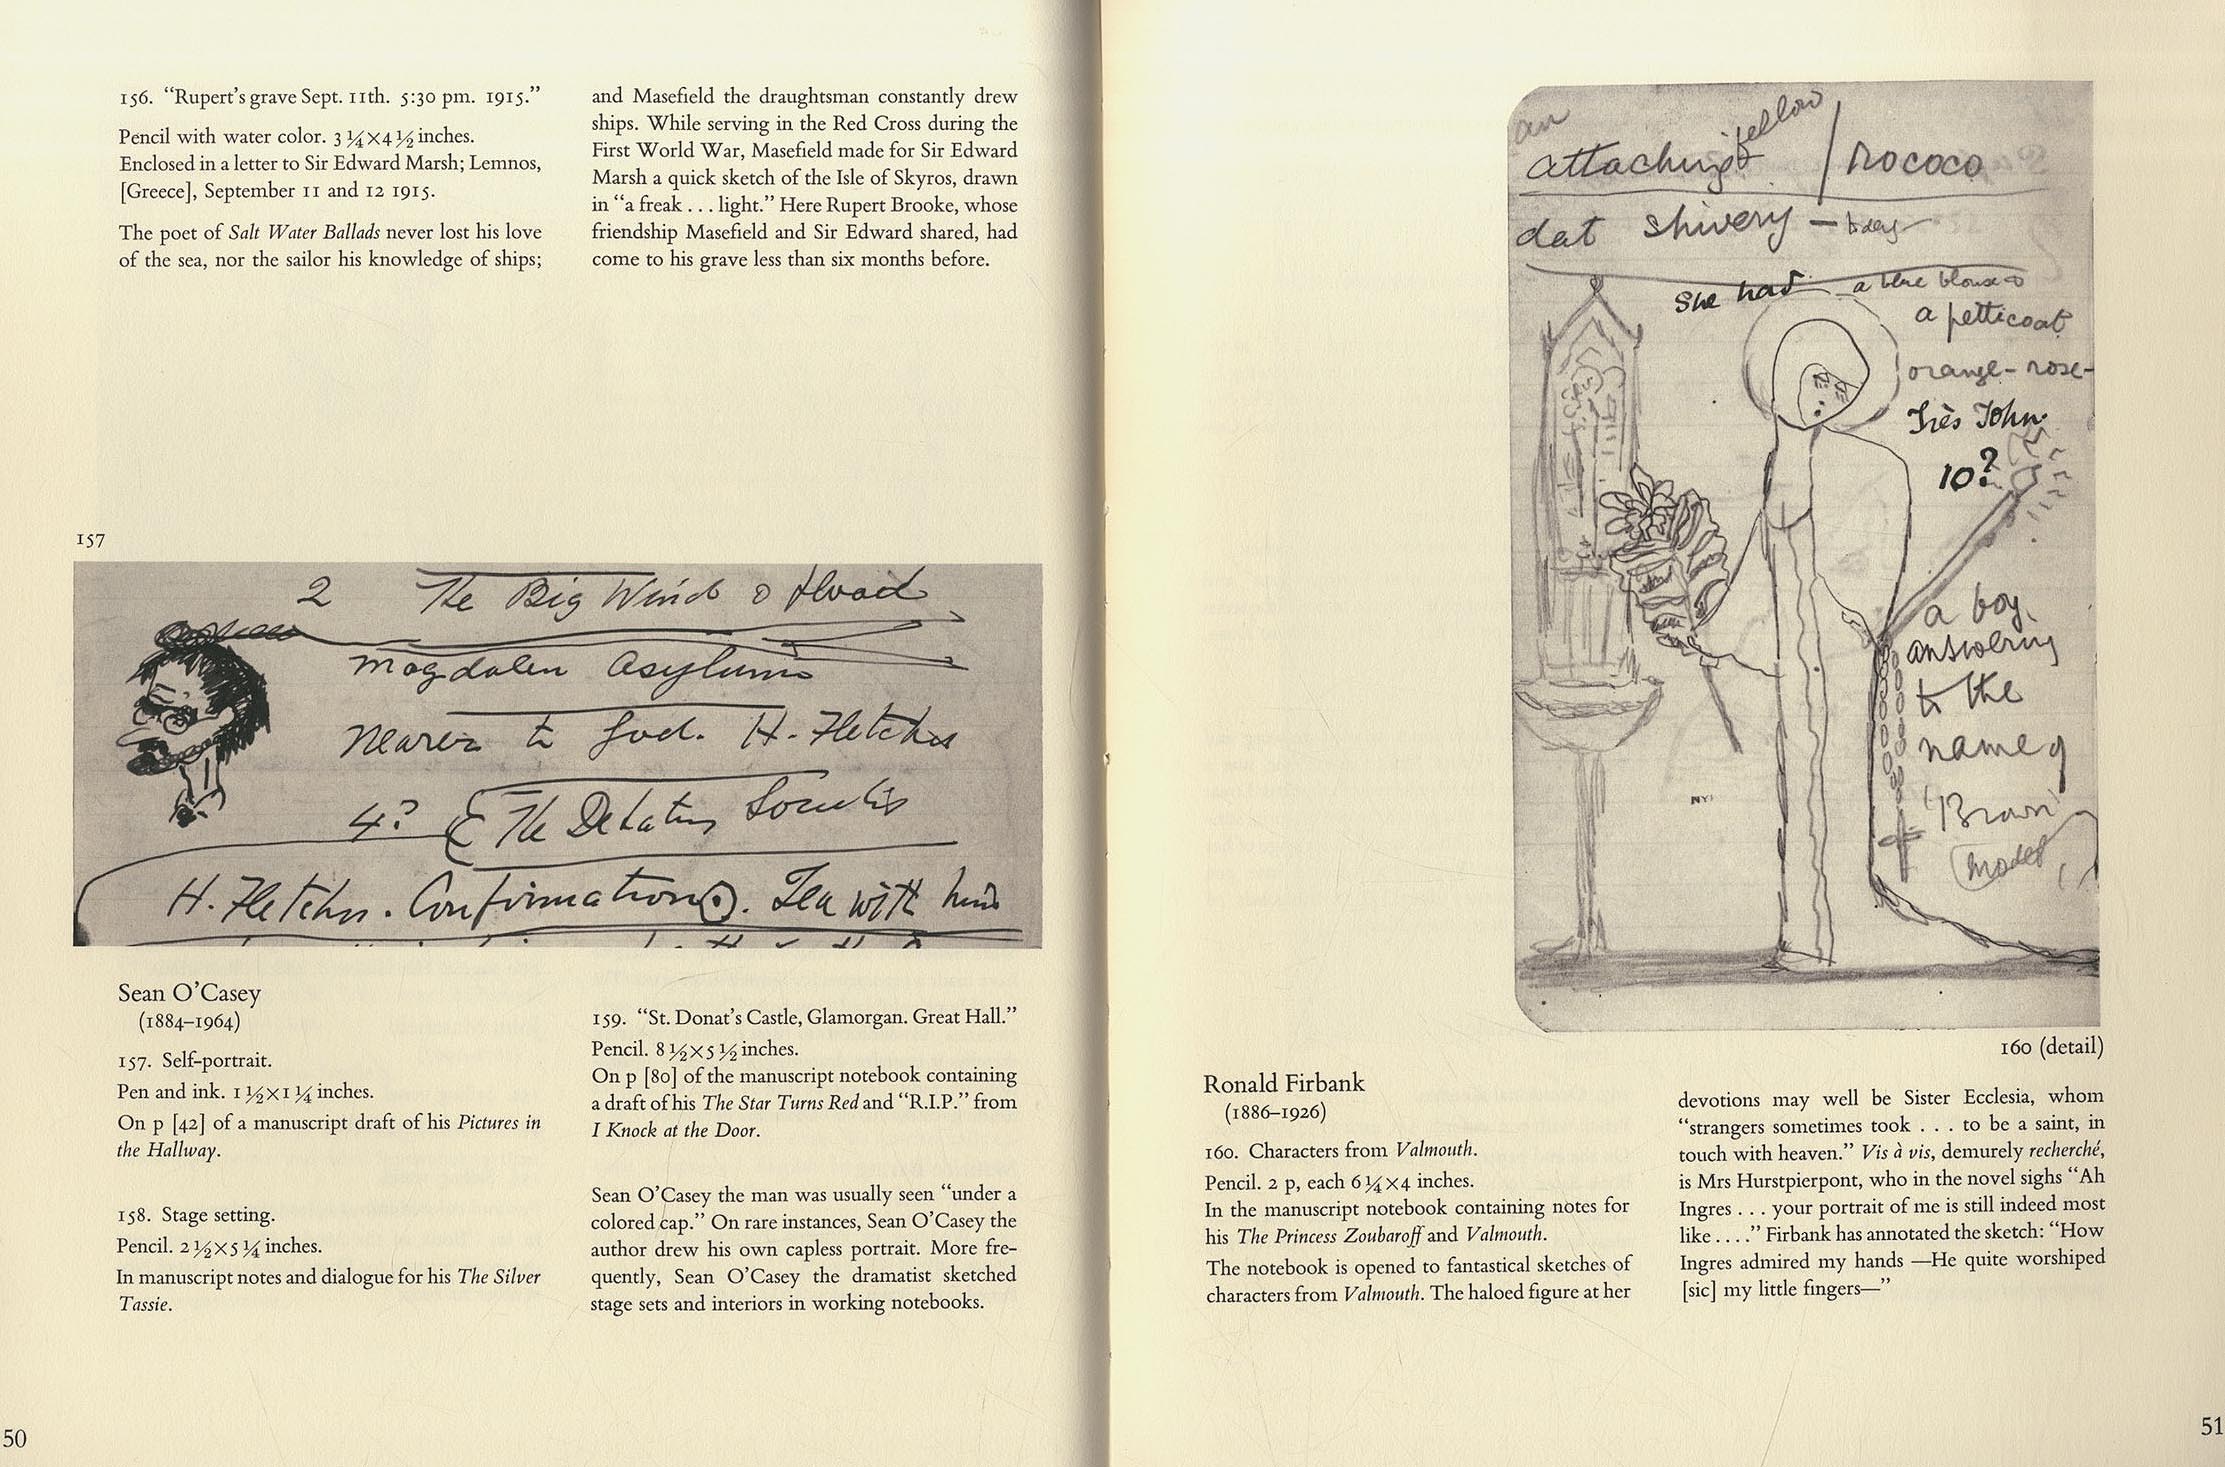 156. “Rupert’s grave Sept. 11th. 5:30 pm. 1915.”
Pencil with water color. 3 ¼ × 4 ½ inches.
Enclosed in a letter to Sir Edward Marsh; Lemnos,
[Greece], September 11 and 12 1915.
The poet of Salt Water Ballads never lost his love
of the sea, nor the sailor his knowledge of ships;
and Masefield the draughtsman constantly drew
ships. While serving in the Red Cross during the
First World War, Masefield made for Sir Edward
Marsh a quick sketch of the Isle of Skyros, drawn
in “a freak . . . light.” Here Rupert Brooke, whose
friendship Masefield and Sir Edward shared, had
come to his grave less than six months before.
157
2 The Big Wind
Magdalen Asylum
Nearer to God. H. Fletcher
4? The Debating Society
H. Fletcher. Confirmation. Tea with him
Sean O’Casey
(1884–1964)
157. Self-portrait.
Pen and ink. 1 ½ × 1 ¼ inches.
On p [42] of a manuscript draft of his Pictures in
the Hallway.
158. Stage setting.
Pencil. 2 ½ × 5 ¼ inches.
In manuscript notes and dialogue for his The Silver
Tassie.
159. “St. Donat’s Castle, Glamorgan. Great Hall.”
Pencil. 8 ½ × 5 ½ inches.
On p [80] of the manuscript notebook containing
a draft of his The Star Turns Red and “R.I.P.” from
I Knock at the Door.
Sean O’Casey the man was usually seen “under a
colored cap.” On rare instances, Sean O’Casey the
author drew his own capless portrait. More fre-
quently, Sean O’Casey the dramatist sketched
stage sets and interiors in working notebooks.
50
an
attaching fellow / rococo
dat shivery –
She had a blue blouse
a petticoat
orange- rose-
Très John
10?
a boy
answering
to the
name of
‘Brown’
model
NY
160 (detail)
Ronald Firbank
(1886–1926)
160. Characters from Valmouth.
Pencil. 2 p, each 6 ¼ × 4 inches.
In the manuscript notebook containing notes for
his The Princess Zoubaroff and Valmouth.
The notebook is opened to fantastical sketches of
characters from Valmouth. The haloed figure at her
devotions may well be Sister Ecclesia, whom
“strangers sometimes took . . . to be a saint, in
touch with heaven.” Vis à vis, demurely recherché,
is Mrs Hurstpierpont, who in the novel sighs “Ah
Ingres . . . your portrait of me is still indeed most
like . . . .” Firbank has annotated the sketch: “How
Ingres admired my hands —He quite worshiped
[sic] my little fingers—”
51